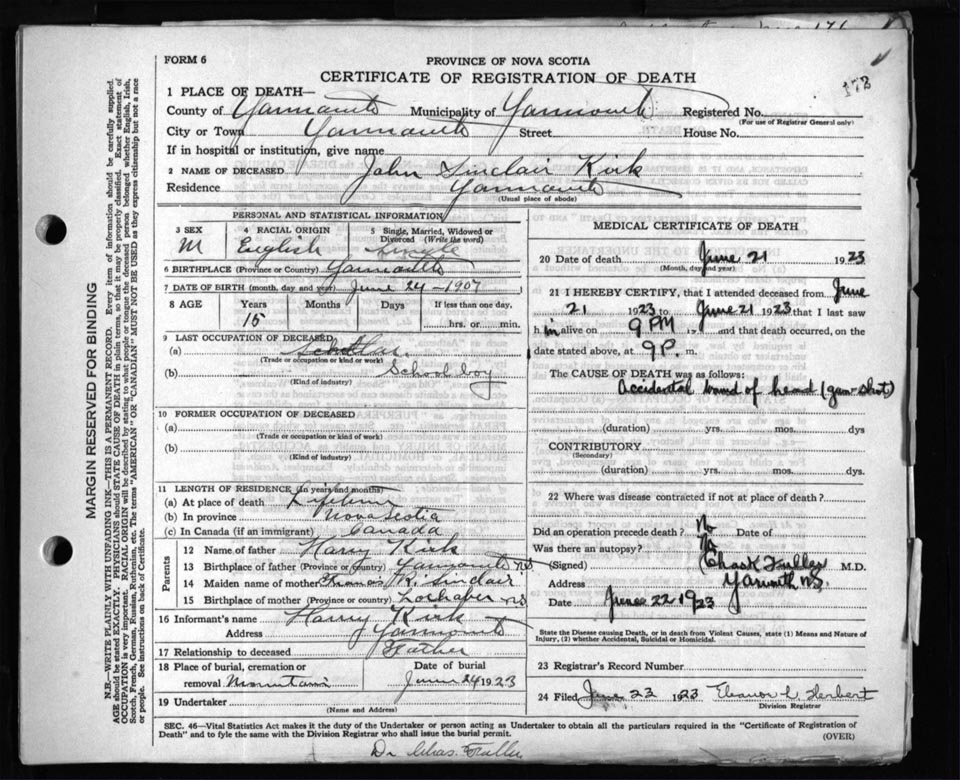 173
FORM 6
PROVINCE OF NOVA SCOTIA
CERTIFICATE OF REGISTRATION OF DEATH
1 PLACE OF DEATH—
County of Yarmouth Municipality of Yarmouth Registered No.
(For use of Registrar General only)
City or Town Yarmouth Street House No.
If in hospital or institution, give name
2 NAME OF DECEASED John Sinclair Kirk
Residence Yarmouth
(Usual place of abode)
PERSONAL AND STATISTICAL INFORMATION
3 SEX 4 RACIAL ORIGIN 5 Single, Married, Widowed or Divorced (Write the word)
M English Single
6 BIRTHPLACE (Province or Country) Yarmouth
7 DATE OF BIRTH (month, day, and year) June 24-1907
8 AGE Years Months Days If less than one day,
15 hrs. or min.
9 LAST OCCUPATION OF DECEASED
(a)
(Trade or occupation or kind or work)
(b) School boy
(Kind of industry)
10 FORMER OCCUPATION OF DECEASED
(a)
(Trade or occupation or kind of work)
(b)
(Kind of industry)
11 LENGTH OF RESIDENCE (in years and months)
(a) At place of death Lifetime
(b) In province Nova Scotia
(c) In Canada (if an immigrant) Canada
Parents
12 Name of father Harry Kirk
13 Birthplace of father (Province or Country) Yarmouth NS
14 Maiden name of mother R. Sinclair
15 Birthplace of mother (Province or country) Lochaber NS
16 Informant's name Harry Kirk
Address Yarmouth
17 Relationship to deceased Father
18 Place of burial, cremation or removal Mountain Date of burial June 24 1923
19 Undertaker
(Name and Address)
MEDICAL CERTIFICATE OF DEATH
20 Date of death June 21 1923
(Month, day and year)
21 I HEREBY CERTIFY, that I attended deceased from June
21 1923 to June 21 1923 that I last saw
h im alive on 9 PM 19 and that death occurred, on the
date stated above, at 9 P. m.
The CAUSE OF DEATH was as follows:
Accidental wound of head (gun-shot)
(duration) yrs. mos. dys
CONTRIBUTORY
(Secondary)
(duration) yrs. mos. dys.
22 Where was disease contracted if not at place of death?
Did an operation precede death? No Date of
Was there an autopsy? No
(Signed) Chas K Fuller M.D.
Address Yarmouth NS.
Date June 22 1923
State the Disease causing Death, or in death from Violent Causes, state (1) Means and Nature of
Injury, (2) whether Accidental, Suicidal or Homicidal.
23 Registrar's Record Number
24 Filed June 23 1923 Eleanor L Herbert
Division Registrar
SEC. 46—Vital Statistics Act makes it the duty of the Undertaker or person acting as Undertaker to obtain all the particulars required in the "Certificate of Registration of
Death" and to fyle the same with the Division Registrar who shall issue the burial permit.
(OVER)
Dr Chas. Fuller
MARGIN RESERVED FOR BINDING
N.B.—WRITE PLAINLY WITH UNFADING INK—THIS IS A PERMANENT RECORD. Every item of information should be carefully supplied.
AGE should be stated EXACTLY. PHYSICIANS should STATE CAUSE OF DEATH in plain terms, so that it may be properly classified. Exact statement of
OCCUPATION is very important. RACIAL ORIGIN will be described by stating to what people or tongue the deceased person belonged whether English, Irish,
Scotch, French, German, Russian, Ruthenian, etc. The terms "AMERICAN" OR "CANADIAN" MUST NOT BE USED as they express citizenship but not a race
or people. See instructions on back of Certificate.